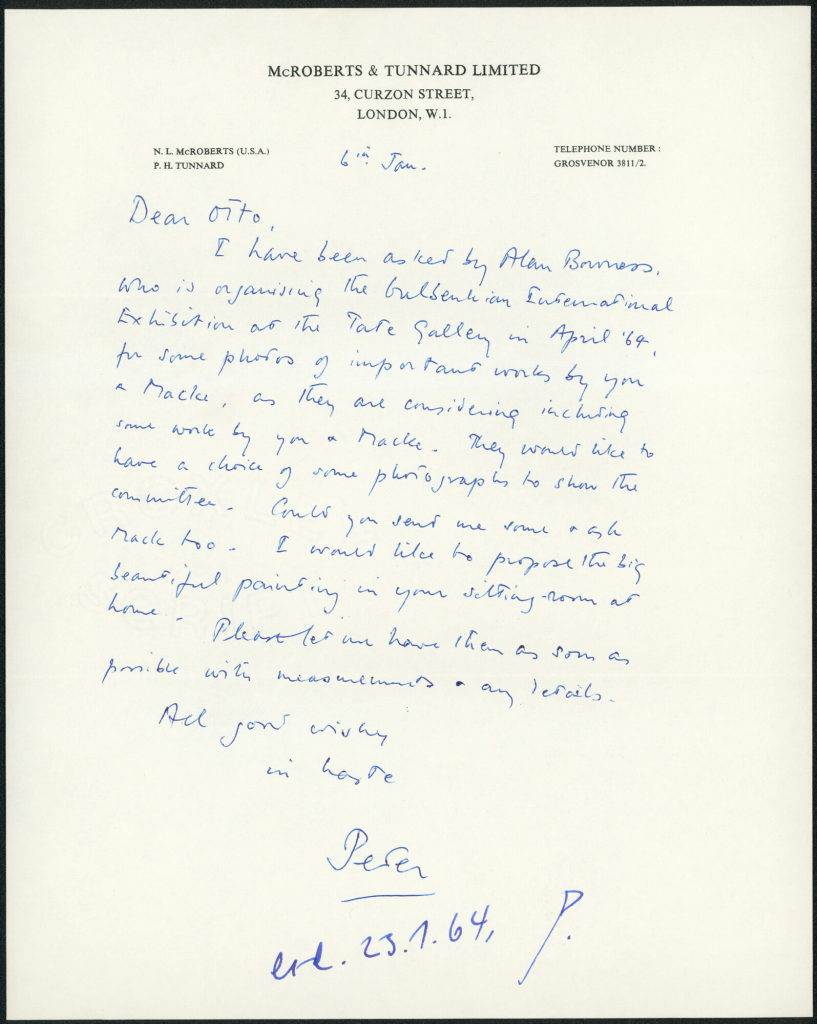 McROBERTS & TUNNARD LIMITED
34, CURZON STREET,
LONDON, W.1.
N. L. McROBERTS (U.S.A.)
P. H. TUNNARD
TELEPHONE NUMBER :
GROSVENOR 3811/2.
6th Jan.
Dear Otto,
I have been asked by Alan Bowness,
who is organising the Gulbenkian International
Exhibition at the Tate Gallery in April '64,
for some photos of important works by you
& Macke, as they are considering including
some work by you & Macke. They would like to
have a choice of some photographs to show the
committee. Could you send me some & ask
Mack too. I would like to propose the big
beautiful painting in your sitting-room at
home. Please let me have them as soon as
possible with measurements & any details.
All good wishes
in haste
Peter
erl. 23.1.64, P.